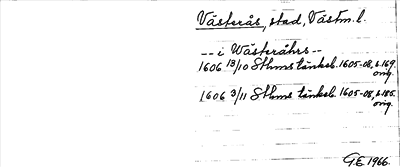 Västerås, stad, Västm. l.
-- i Wästeråhrs --
1606 13/10 Sthms tänkeb. 1605-08, s. 169.
orig.
1606 3/11 Sthms tänkeb. 1605-08, s. 185.
orig.
GE 1966.